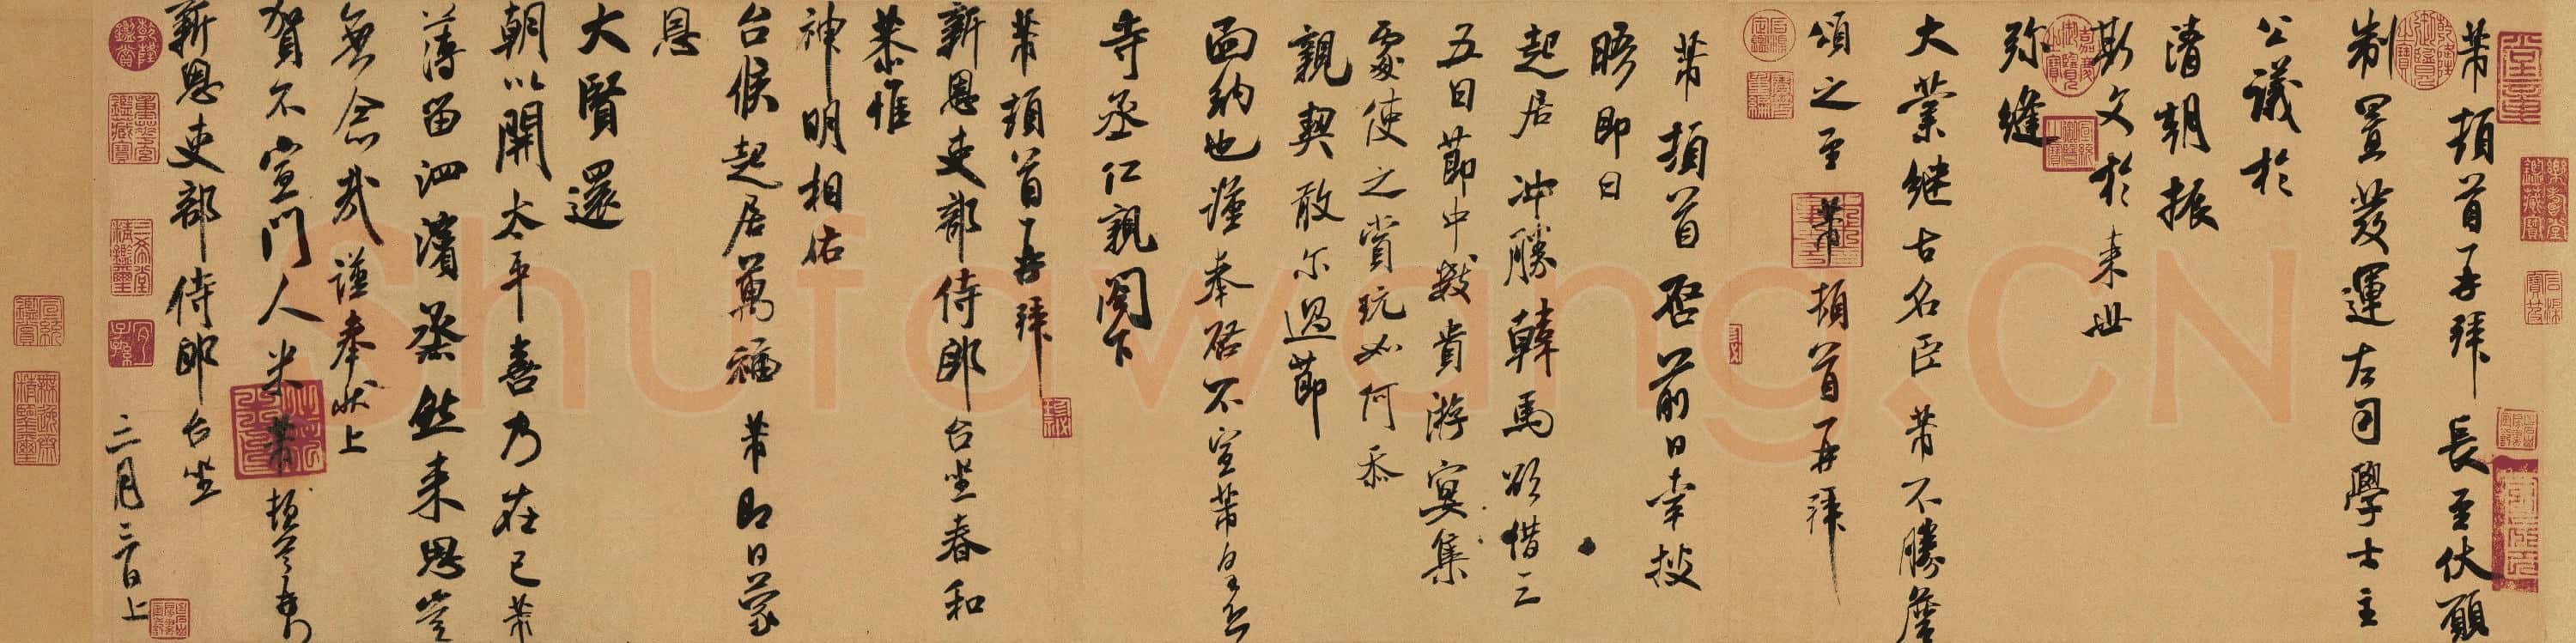 芾頓首再拜長至伏願
制置發運左司學士主
公議於
清朝振
斯文於來世
弥縫
大業継古名臣芾不勝詹
頌之至芾頓首再拜
芾頓首啓前日幸披
晤即日
起居沖勝韓馬欲借三
五日節中數貴游宴集
處使之賞玩如何忝
親契敢尔過節
面納也謹奉啓不宣芾皇恐
寺丞仁親閣下
芾頓首再拜
新恩吏部侍郎台坐春和
恭惟
神明相佑
台候起居萬福芾即日蒙
恩
大賢還
朝以開太平喜乃在己芾
薄留泗濱蒸然來思豈
無念哉謹奉狀上
賀不宣門人米芾頓首再拜
新恩吏部侍郎台坐
二月二日上
Shufawang.CN